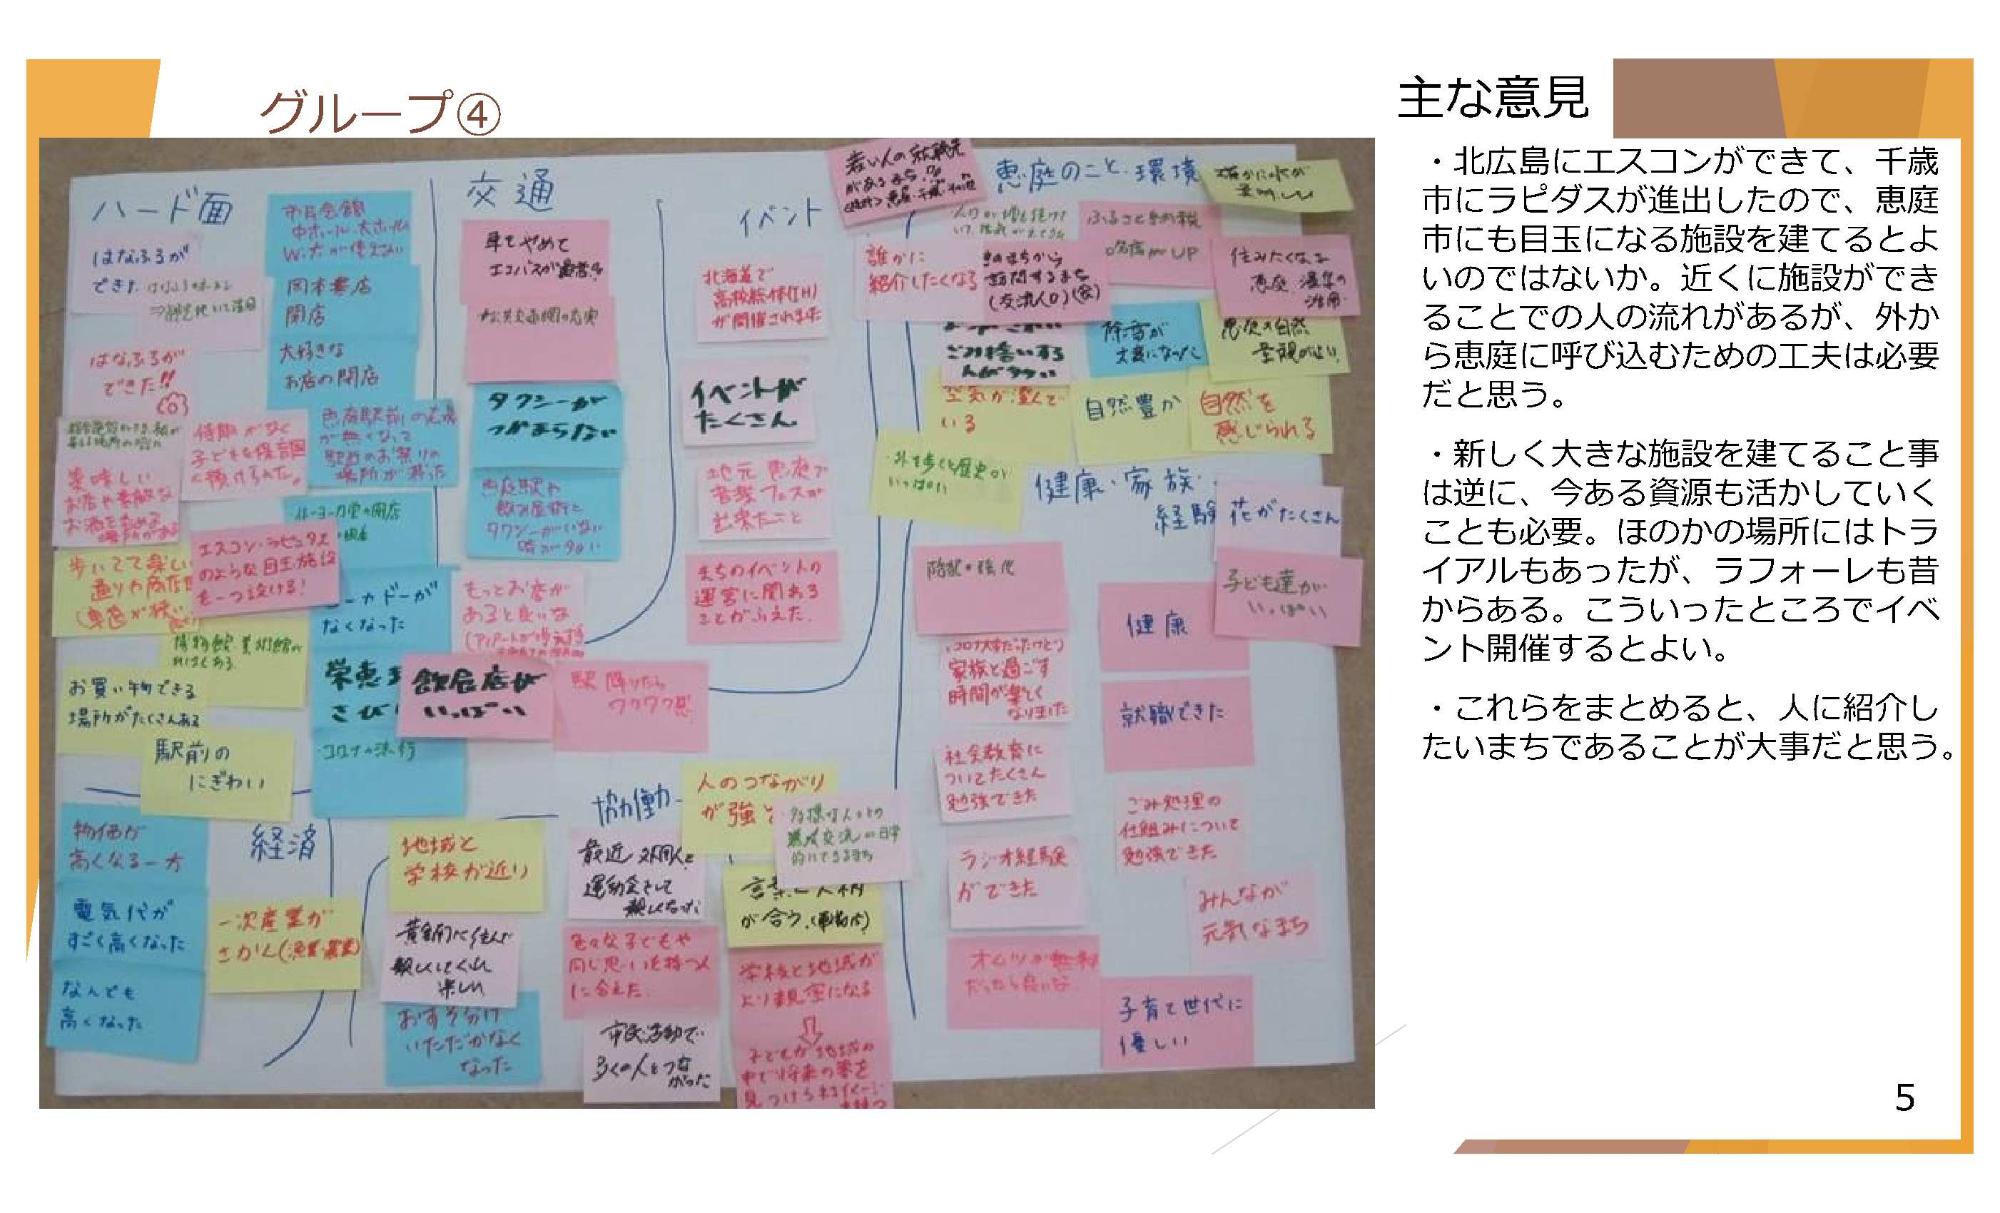 グループ④
主な意見
・北広島にエスコンができて、千歳
市にラピダスが進出したので、恵庭
市にも目玉になる施設を建てるとよ
いのではないか。近くに施設ができ
ることでの人の流れがあるが、外か
ら恵庭に呼び込むための工夫は必要
だと思う。
・新しく大きな施設を建てること事
は逆に、今ある資源も活かしていく
ことも必要。ほのかの場所にはトラ
イアルもあったが、ラフォーレも昔
からある。こういったところでイベ
ント開催するとよい。
・これらをまとめると、人に紹介し
たいまちであることが大事だと思う。
ハード面
はなふるが
できた
はなふるが
できた!!
市民会館
中ホール、大ホール
岡本書店
閉店
大好きな
お店の閉店
待期がなく
子どもを保育園
に預けられた。
美味しい
エスコン・ラピュタス
のような目玉施設
を一つ設ける!
なくなった
お買い物できる
場所がたくさんある
駅前の
にぎわい
コロナの流行
交通
車をやめて
公共交通網の充実
タクシーが
つかまらない
恵庭駅や
飲み屋街で
タクシーがいない
時が多い
もっとお店が
あると良いな
飲食店が
いっぱい
駅降りたら
ワクワク感
イベント
北海道で
高校総体(IH)
が開催されました
イベントが
たくさん
地元恵庭で
音楽フェスが
出来たこと
まちのイベントの
運営に関わる
ことがふえた。
恵庭のこと・環境
若い人の就職先
がある
誰かに
紹介したくなる
訪問するまち
(交流人口)
ふるさと納税
UP
住みたくなる
ごみ拾いする
除雪が
大変になった
恵庭の自然
景観がよい
空気が澄んで
いる
自然豊か
自然を
感じられる
いっぱい
健康・家族・
経験
花がたくさん
子ども達が
いっぱい
健康
家族と過ごす
時間が楽しく
なりました
就職できた
社会教育に
ついてたくさん
勉強できた
ごみ処理の
仕組みについて
勉強できた
ラジオ経験
ができた
みんなが
元気なまち
オムツが無料
だったら良いな
子育て世代に
優しい
経済
物価が
高くなる一方
電気代が
すごく高くなった
なんでも
高くなった
一次産業が
さかん(漁業・農業)
協働
人のつながり
が強い
地域と
学校が近い
最近、外国人と
運動会をして
親しくなった
黄金南に住んで
親しくしてくれ
楽しい
色々な子どもや
同じ思いを持つ人
に会えた。
おすそ分け
いただかなく
なった
市民活動で
多くの人とつな
がった
学校と地域が
より親密になる
子どもが地域の
中で将来の夢を
5